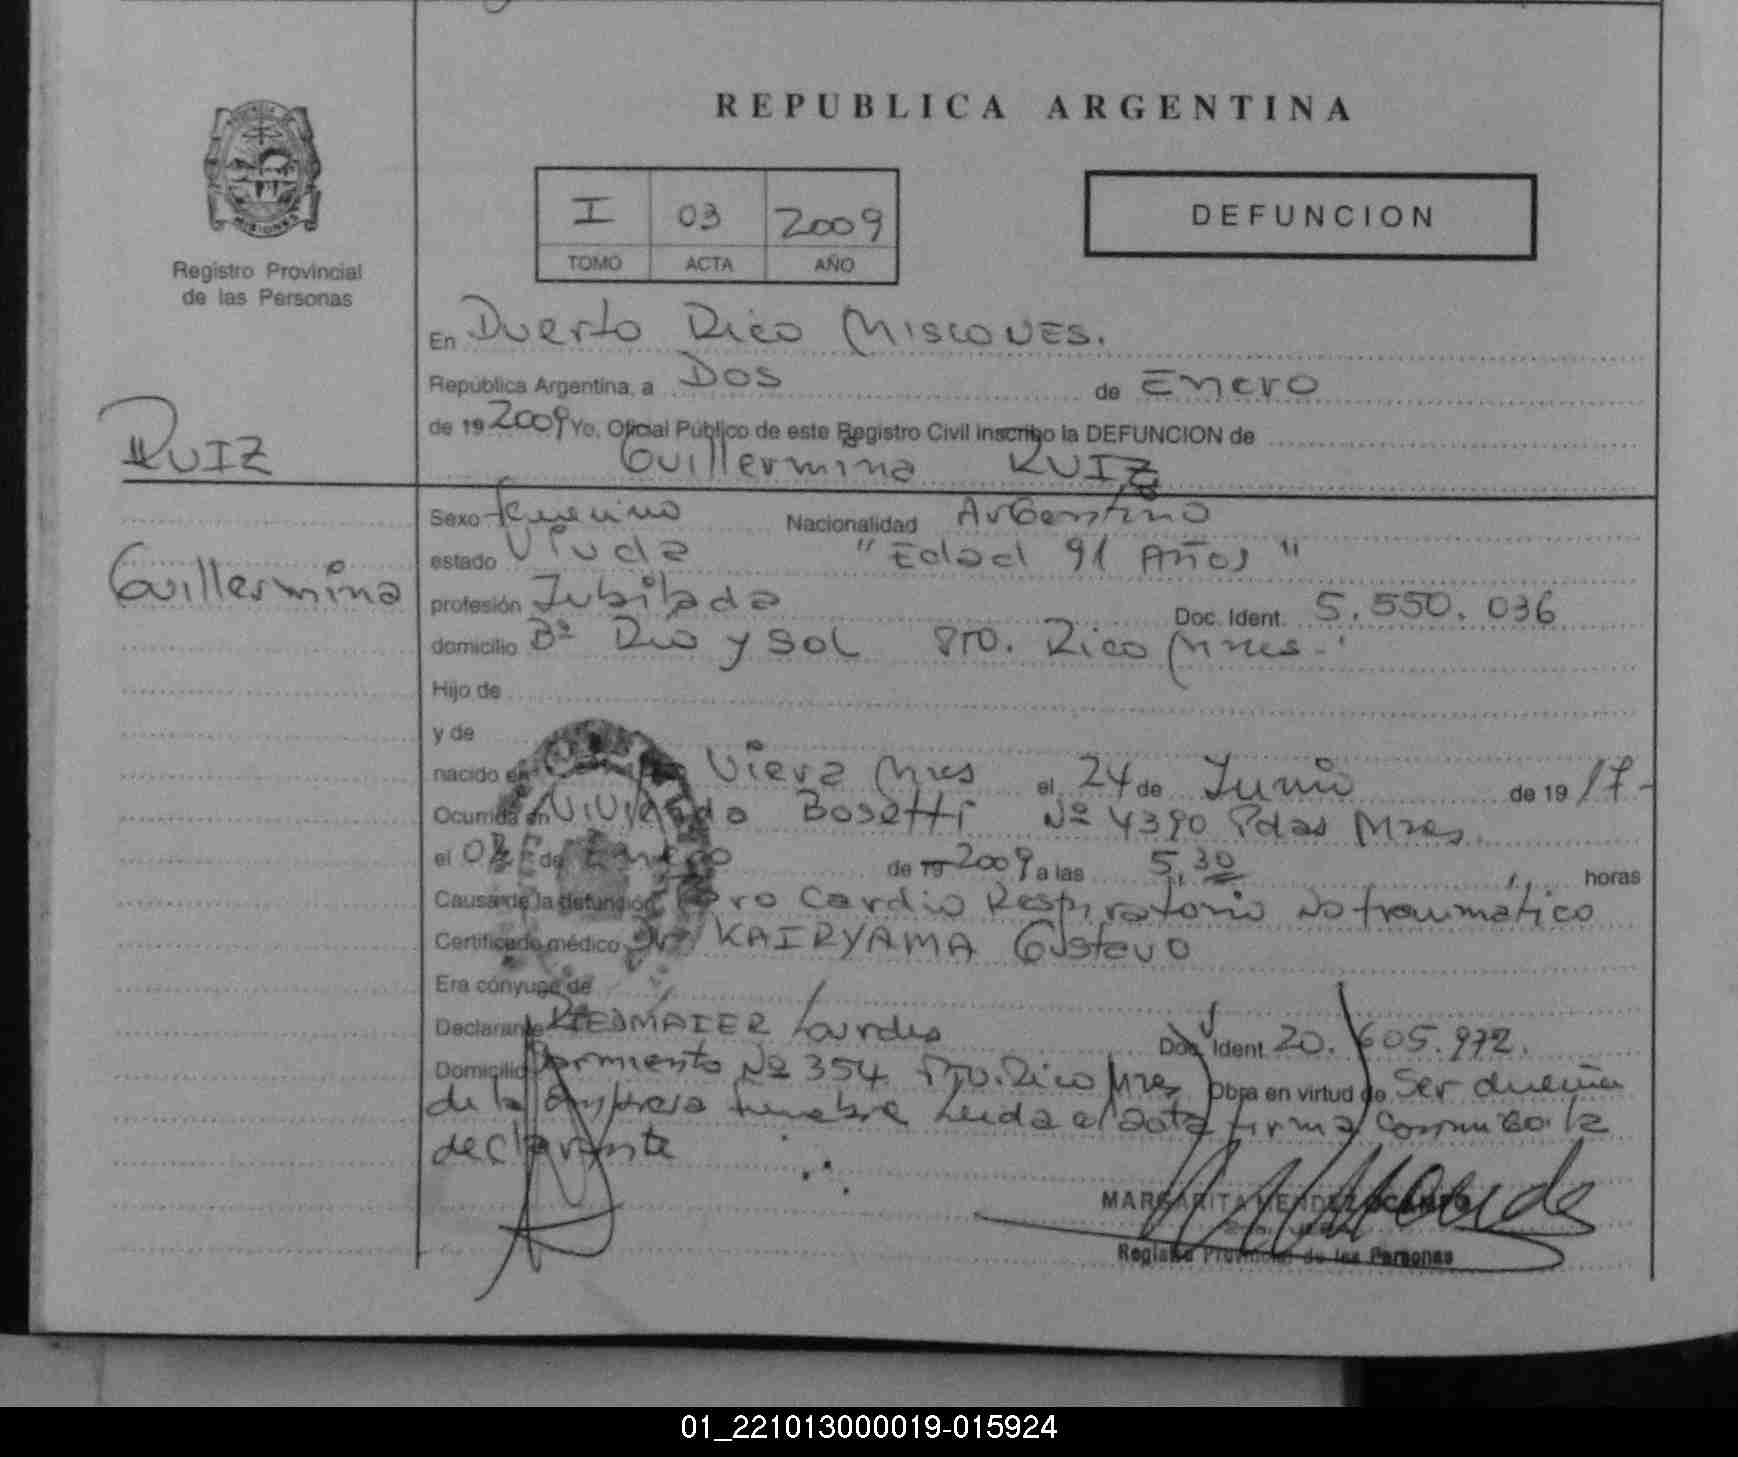 REPUBLICA ARGENTINA
I 03 2009
TOMO ACTA AÑO
DEFUNCION
MISIONES
Registro Provincial
de las Personas
RUIZ
Guillermina
En Puerto Rico Misiones.
República Argentina, a Dos de Enero
de 19 2009 Yo, Oficial Público de este Registro Civil inscribo la DEFUNCION de
Guillermina RUIZ
Sexo femenino Nacionalidad Argentino
estado Viuda "Edad 91 Años"
profesión Jubilada Doc. Ident. 5.550.036
domicilio Bº Rio y Sol Pto. Rico Mnes.
Hijo de
y de
nacido en Viera Mnes el 24 de Junio de 19 17-
Ocurrida en Vivienda Bosetti Nº 4390 Pdas Mnes.
el de Enero de 19 2009 a las 5,30 horas
Causa de la defunción Paro Cardio Respiratorio No traumático
Certificado médico Dr. KAIRYAMA Gustavo
Era cónyuge de
Declarante Lourdes
Doc. Ident. 20.605.972.
Domicilio Sarmiento Nº 354 Pto. Rico Mnes Obra en virtud de Ser dueña
de la Empresa funebre Leida el acta firma conmigo la
declarante
MARGARITA MENDEZ
Registro Provincial de las Personas
01_221013000019-015924